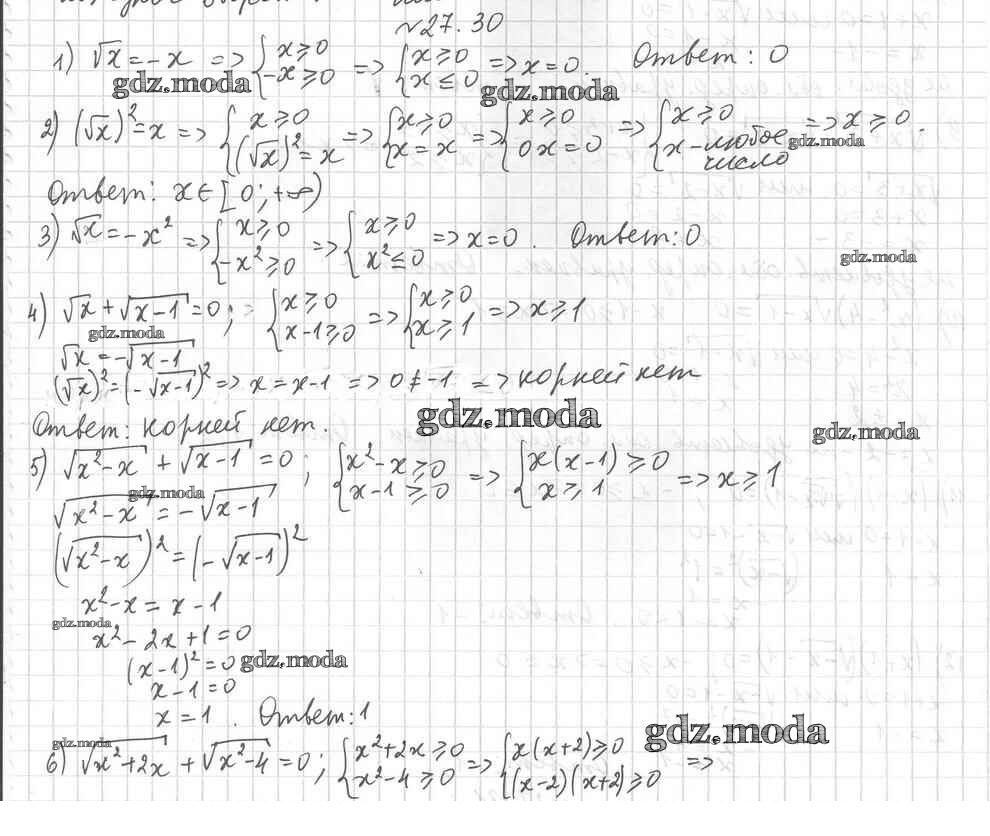 №27.30
1) √x = -x => { x ≥ 0 -x ≥ 0 => { x ≥ 0 x ≤ 0 => x = 0. Ответ: 0
gdz.moda gdz.moda
2) (√x)² = x => { x ≥ 0 (√x)² = x => { x ≥ 0 x = x => { x ≥ 0 0x = 0 => { x ≥ 0 x - любое число => x ≥ 0.
gdz.moda
Ответ: x ∈ [0; +∞)
3) √x = -x² => { x ≥ 0 -x² ≥ 0 => { x ≥ 0 x² ≤ 0 => x = 0. Ответ: 0
gdz.moda
4) √x + √(x-1) = 0; { x ≥ 0 x-1 ≥ 0 => { x ≥ 0 x ≥ 1 => x ≥ 1
gdz.moda
√x = -√(x-1)
(√x)² = (-√(x-1))² => x = x-1 => 0 ≠ -1 => корней нет
Ответ: корней нет.
gdz.moda gdz.moda
5) √(x²-x) + √(x-1) = 0; { x²-x ≥ 0 x-1 ≥ 0 => { x(x-1) ≥ 0 x ≥ 1 => x ≥ 1
gdz.moda
√(x²-x) = -√(x-1)
(√(x²-x))² = (-√(x-1))²
x²-x = x-1
gdz.moda
x²-2x+1=0
(x-1)²=0
gdz.moda
x-1=0
x=1. Ответ: 1
gdz.moda gdz.moda
6) √(x²+2x) + √(x²-4) = 0; { x²+2x ≥ 0 x²-4 ≥ 0 => { x(x+2) ≥ 0 (x-2)(x+2) ≥ 0 =>